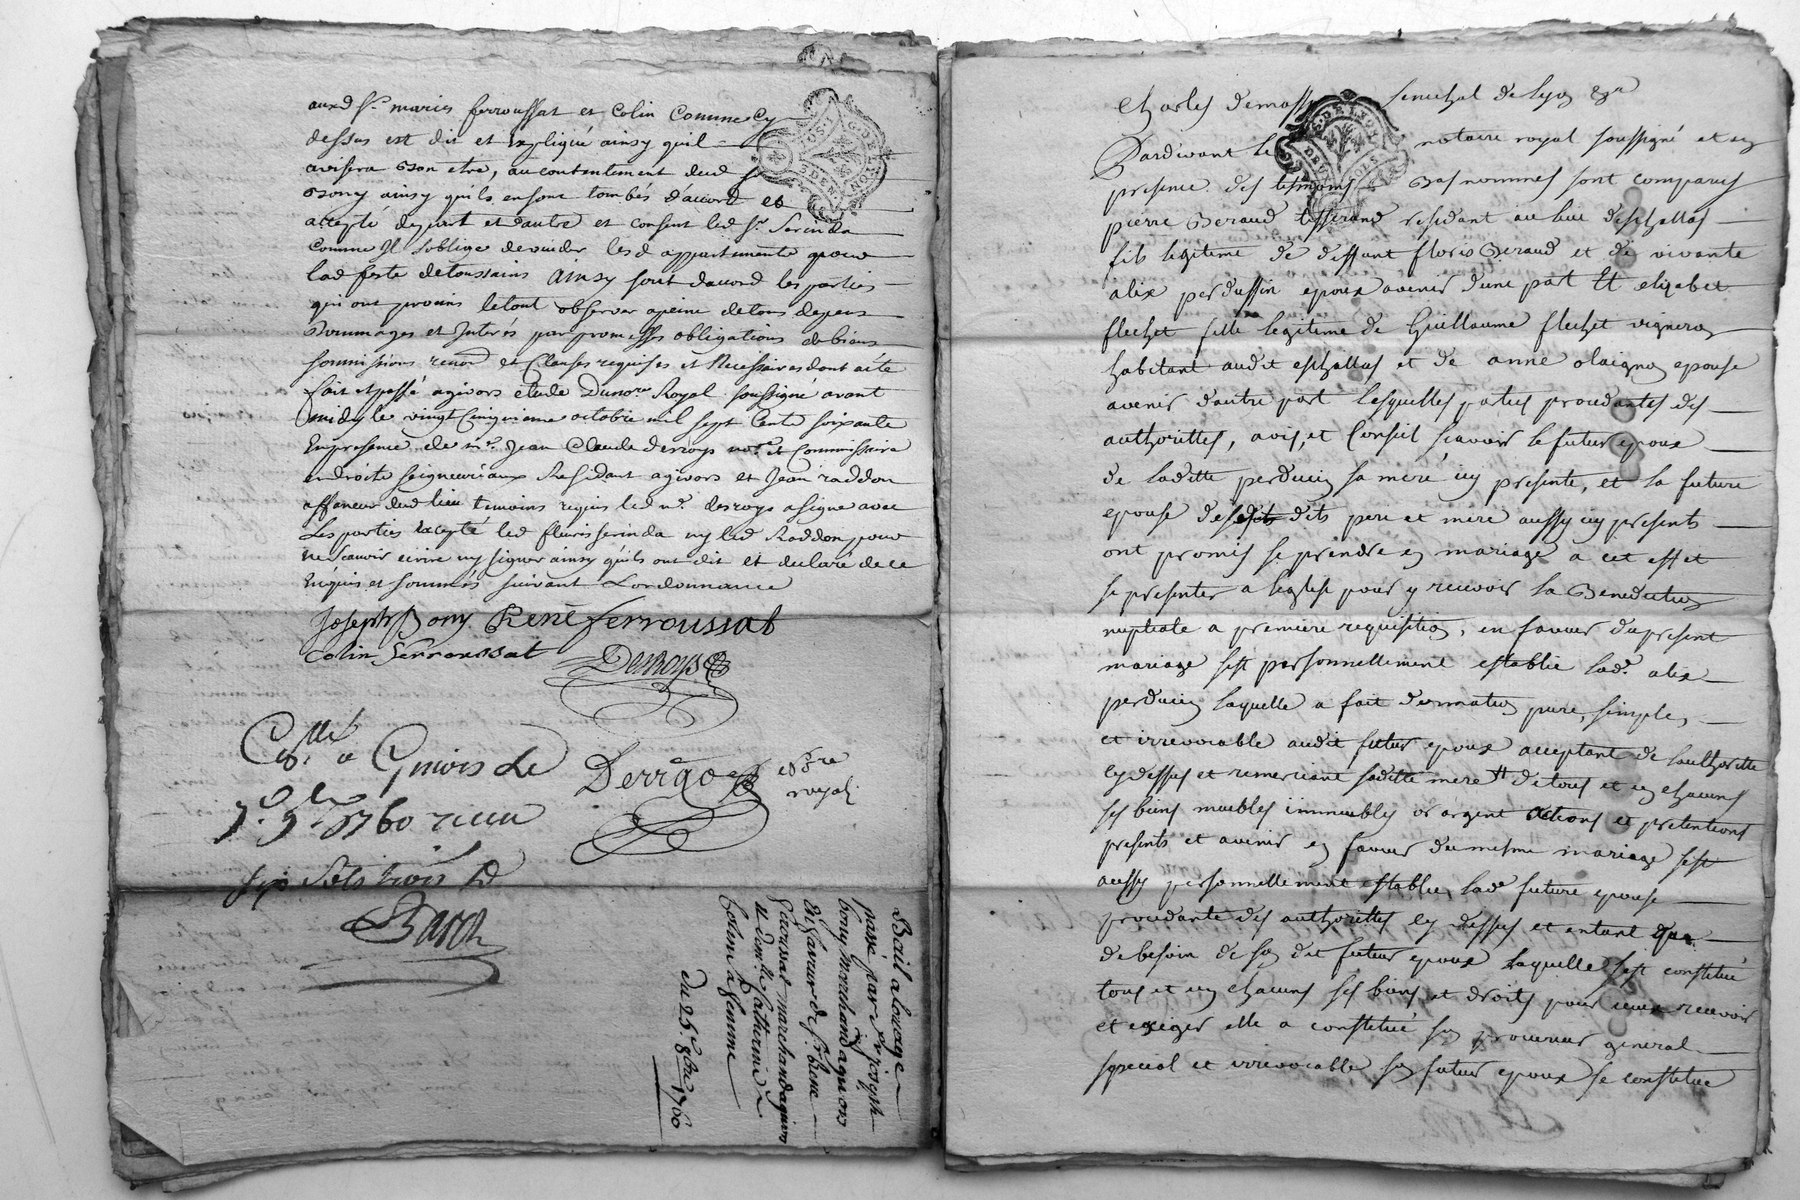 auxd sr. maries ferroussat et Colin Comme Cy
dessus est dit et Expliqué ainsy quil
avisera bon etre, au contentement dud sr
Bony ainsy quils en sont tombés d'accord et
accepté de part et d'autre et consent led sr. Serinda
comme Il soblige de vuider lesd appartements pour
lad feste de toussains Ainsy sont daccord les parties
qui ont promis letout observer apeine detous depens
Dommages et Interés par promesses obligations de biens
soumissions renon et Clauses requises et Necessaires dont acte
fait et passé agivors etude Du nore Royal soussigné avant
midy le vingt Cinquieme octobre mil sept Cents soixante
En presence de mr. Jean Claude desroys nore. et Commissaire
en droits seigneuriaux Residant agivors et Jean raddon
affaneur dud lieu temoins requis led mr. desroys a signé avec
Les parties Excepté led fleuri serinda ny led Raddon pour
ne scavoir ecrire ny signer ainsy quils ont dit et declaré de ce
Enquis et sommés suivant Lordonnance
Joseph Bony René ferroussat
Colin ferroussat
Desroys
Collé a Givors Le
7e. 9bre 1760 recu
six sols trois d
Baron
Derrago
nore
royal
Bail a louage
passé par sr joseph
bony marchand a givors
en faveur de sr. Rene
ferroussat marchand a givors
et dom.lle Catherine
Colin a femme
du 25e. 8bre 1760
Charles demass senechal de Lyon &a
Pardevant le notaire royal soussigné et en
presence des temoins Bas nommés sont comparus
pierre Beraud tisserand residant au lieu deschallas
fils legitime de deffunt floris Beraud et de vivante
alix perdussin epoux avenir d'une part Et elizabet
flechet fille legitime de Guillaume flechet vigneron
habitant audit eschallas et de anne olaignon epouse
avenir d'autre part Lesquelles parties procedantes des
authorittés, avis, et Conseil scavoir le futur epoux
de laditte perducin sa mere icy presente, et la future
epouse de sesdits dits pere et mere aussy icy presents
ont promis se prendre en mariage a cet effet
se presenter a leglise pour y recevoir la Benediction
nuptiale a premiere requisition, en faveur du present
mariage sest personnellement establie lade. alix
perducin laquelle a fait donnation pure, simple,
et irrevocable audit futur epoux acceptant de lauthoritte
cy dessus et remerciant saditte mere de tous et un chacuns
ses biens meubles immeubles or argent actions et pretentions
presents et avenir en faveur du mesme mariage sest
aussy personnellement establie lade future epouse
procedante des authorittés cy dessus et entant que
de besoin de son dit futur epoux laquelle sest constitué
tous et un chacuns ses biens et droits pour iceux recevoir
et exiger elle a constitué son procureur general
special et irrevocable son futur epoux se constitue